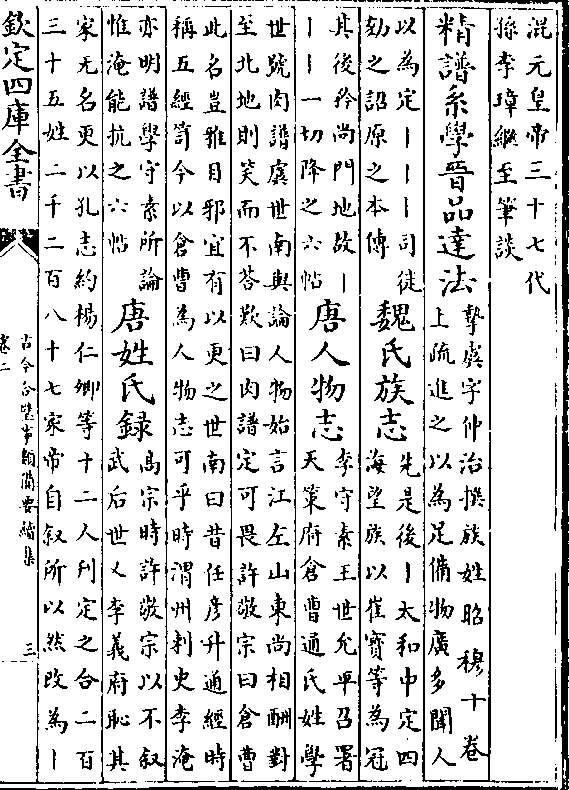 混元皇帝三十七代
孫李璋繼至筆談
精譜系學晉品達法
摯虞字仲治撰族姓昭穆十卷
上疏進之以為足備物廣多聞人
以為定丨丨丨司徒
劾之詔原之本傳
魏氏族志
先是後丨太和中定四
海望族以崔寳等為冠
其後矜尚門地故丨
丨丨一切降之六帖
唐人物志
李守素王世充平召署
天策府倉曹通氏姓學
世號肉譜虞世南與論人物始言江左山東尚相酬對
至北地則笑而不荅歎曰肉譜定可畏許敬宗曰倉曹
此名豈雅目邪宜有以更之世南曰昔任彦升通經時
稱五經笥今以倉曹為人物志可乎時渭州刺史李淹
亦明譜學守素所論
惟淹能抗之六帖
唐姓氏録
髙宗時許敬宗以不叙
武后世又李義府恥其
家无名更以孔志約楊仁卿等十二人刋定之合二百
三十五姓二千二百八十七家帝自叙所以然改為丨
欽定四庫全書
古今合璧事類備要續集
卷二
三